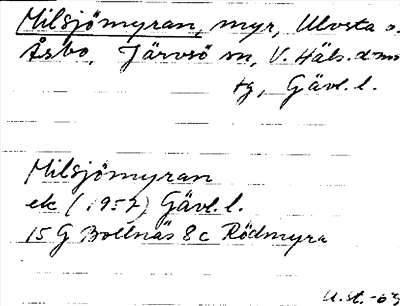 Milsjömyran, myr, Ulvsta o.
Åsbo, Järvsö sn, V. Häls. dms
tg, Gävl. l.
Milsjömyran
ek (1957) Gävl. l.
15 G Bollnäs 8c Rödmyra
U.st. -63